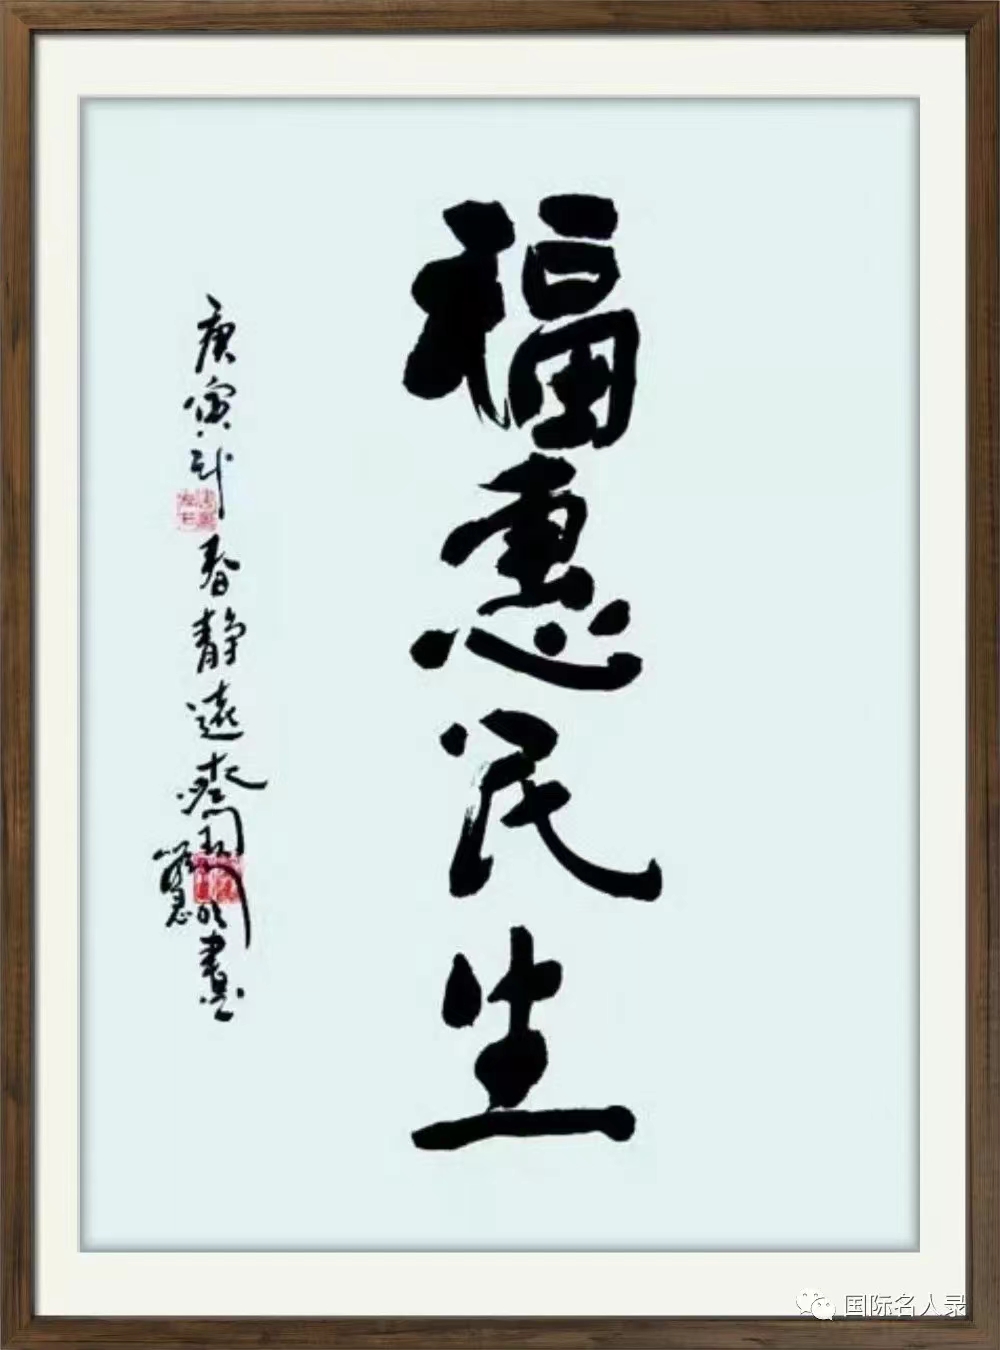 福惠民生
庚寅新春静远斋
书
国际名人录